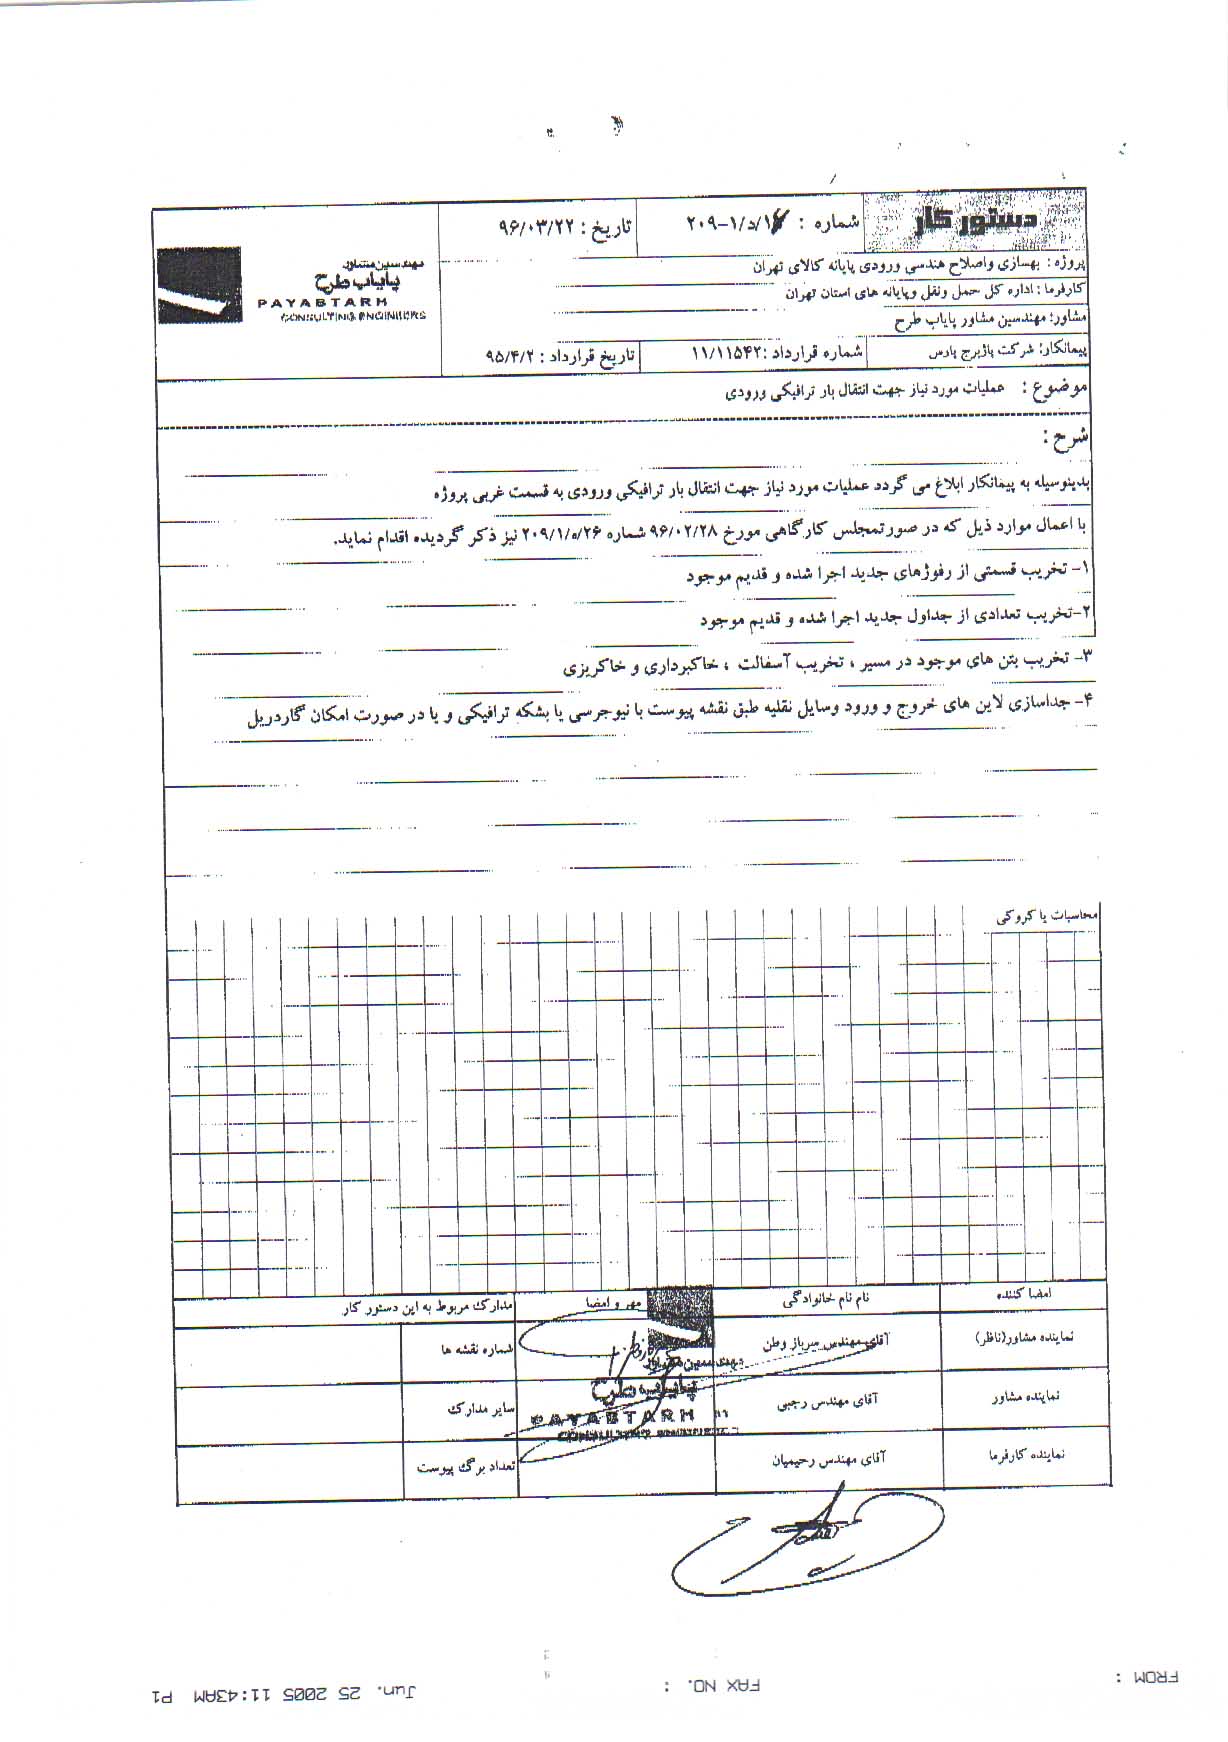 دستور کار
شماره : ۲۰۹-۱/د/۱۷
تاریخ : ۹۶/۰۳/۲۲
مهندسین مشاور
پایاب طرح
PAYABTARH
CONSULTING ENGINEERS
پروژه : بهسازی واصلاح هندسی ورودی پایانه کالای تهران
کارفرما : اداره کل حمل ونقل وپایانه های استان تهران
مشاور: مهندسین مشاور پایاب طرح
پیمانکار: شرکت پاژبرج پارس
شماره قرارداد :۱۱/۱۱۵۴۲
تاریخ قرارداد : ۹۵/۴/۲
موضوع : عملیات مورد نیاز جهت انتقال بار ترافیکی ورودی
شرح :
بدینوسیله به پیمانکار ابلاغ می گردد عملیات مورد نیاز جهت انتقال بار ترافیکی ورودی به قسمت غربی پروژه
با اعمال موارد ذیل که در صورتمجلس کارگاهی مورخ ۹۶/۰۲/۲۸ شماره ۲۰۹/۱/ه/۲۶ نیز ذکر گردیده اقدام نماید.
۱- تخریب قسمتی از رفوژهای جدید اجرا شده و قدیم موجود
۲-تخریب تعدادی از جداول جدید اجرا شده و قدیم موجود
۳- تخریب بتن های موجود در مسیر ، تخریب آسفالت ، خاکبرداری و خاکریزی
۴- جداسازی لاین های خروج و ورود وسایل نقلیه طبق نقشه پیوست با نیوجرسی یا بشکه ترافیکی و یا در صورت امکان گاردریل
محاسبات یا کروکی
امضا کننده
نام نام خانوادگی
مهر و امضا
مدارک مربوط به این دستور کار
نماینده مشاور(ناظر)
آقای مهندس سرباز وطن
شماره نقشه ها
نماینده مشاور
آقای مهندس رجبی
سایر مدارک
نماینده کارفرما
آقای مهندس رحیمیان
تعداد برگ پیوست
مهندسین مشاور
پایاب طرح
PAYABTARH
CONSULTING ENGINEERS
FROM :
FAX NO. :
Jun. 25 2005 11:43AM P1